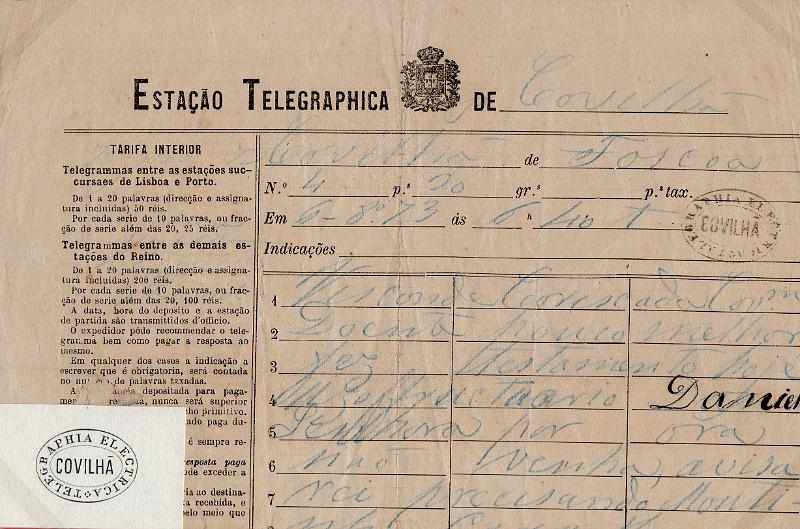 ESTAÇÃO TELEGRAPHICA DE Covilhã
TARIFA INTERIOR
Telegrammas entre as estações suc-
cursaes de Lisboa e Porto.
De 1 a 20 palavras (direcção e assigna-
tura incluidas) 50 réis.
Por cada serie de 10 palavras, ou frac-
ção de serie além das 20, 25 réis.
Telegrammas entre as demais es-
tações do Reino.
De 1 a 20 palavras (direcção e assigna-
tura incluidas) 200 réis.
Por cada serie de 10 palavras, ou frac-
ção de serie além das 20, 100 réis.
A data, hora do deposito e a estação
de partida são transmittidos d'officio.
O expedidor póde recommendar o tele-
gramma bem como pagar a resposta ao
mesmo.
Em qualquer dos casos a indicação a
escrever que é obrigatoria, será contada
no de palavras taxadas.
A depositada para paga-
nunca será superior
primitivo.
pago du-
é sempre re-
resposta paga
póde exceder a
ao destina-
recebida, e
pelo meio que
Covilhã de Foscoa
N.º 4 p.ª 20 gr.ª p.ª tax.
Em 6-8º-73 ás 8 h 40 t
Indicações
TELEGRAPHIA ELECTRICA
COVILHÃ
1 Visconde
2 Doente pouco melhor
3 fez testamento hoje
4 Daniel
5 Senhora por ora
6 não venha, avisa
7 rei precisando
TELEGRAPHIA ELECTRICA
COVILHÃ